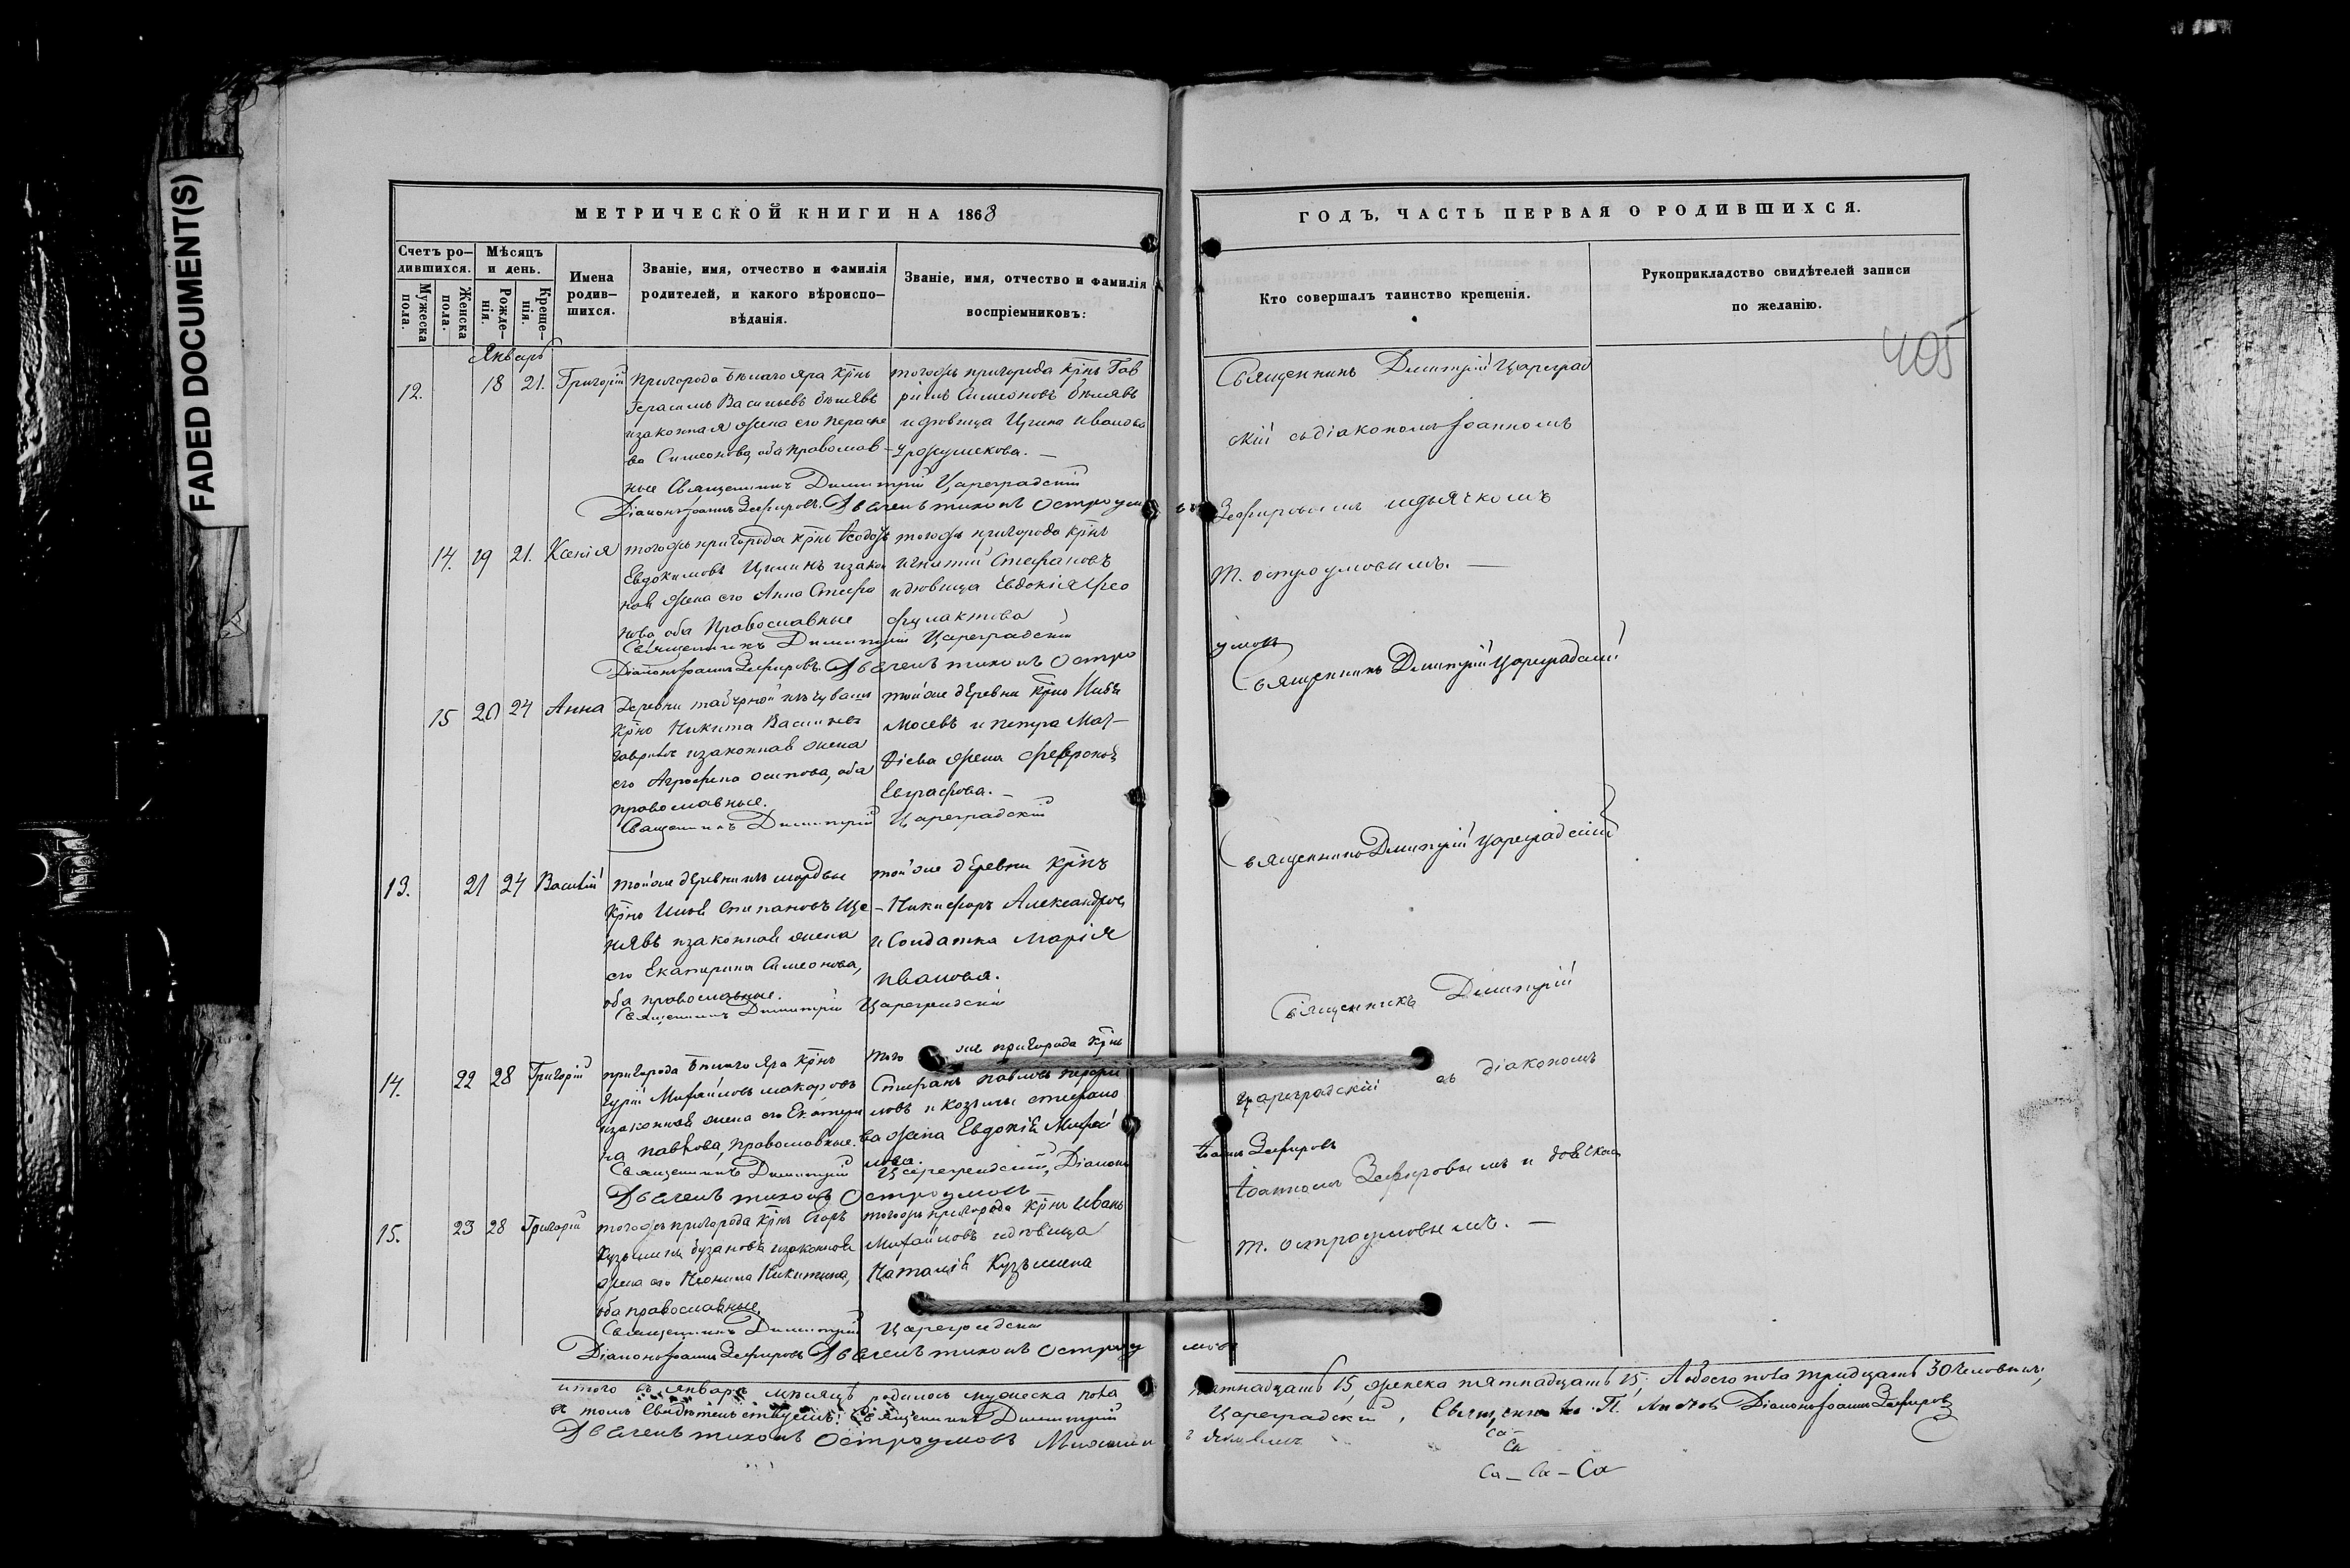 FADED DOCUMENT(S)
МЕТРИЧЕСКОЙ КНИГИ НА 1868
ГОДЪ, ЧАСТЬ ПЕРВАЯ О РОДИВШИХСЯ.
Счетъ ро-
дившихся.
Мужеска
пола.
Женска
пола.
Мѣсяцъ
и день.
Рожде-
нія.
Креще-
нія.
Имена
родив-
шихся.
Званіе, имя, отчество и фамилія
родителей, и какого вѣроиспо-
вѣданія.
Званіе, имя, отчество и фамилія
воспріемниковъ:
Кто совершалъ таинство крещенія.
Рукоприкладство свидѣтелей записи
по желанію.
405
Январь
12. 18 21. Григорій
Пригорода Бѣлаго Яра Крнъ
Герасимъ Васильевъ Бѣляевъ
и законная жена его Параске
ва Симеонова, оба православ-
ные
тогожъ пригорода Крнъ Гав
ріилъ Симеоновъ Бѣляевъ
и вдовица Ирина Иванова
Священникъ Димитрій Цареградскій
Діаконъ Іоаннъ Зефировъ. Дьячекъ Тихонъ Остроумовъ
Священникъ Димитрій Цареград
скій съ діакономъ Іоанномъ
Зефировымъ и дьячкомъ
Т. Остроумовымъ. —
14. 19 21. Ксенія
тогожъ пригорода Крнъ Ѳеодоръ
Евдокимовъ
жена его Анна Стефа
нова оба Православные
тогожъ пригорода Крнъ
Игнатій Стефановъ
и вдовица Евдокія Ѳео
филактова
Священникъ Димитрій Цареградскій
Діаконъ Іоаннъ Зефировъ. Дьячекъ Тихонъ Остро
умовъ
Священникъ Димитрій Цареградскій
15 20 24 Анна
Деревни изъ чувашъ
Крнъ Никита Васильевъ
Гавриловъ и законная жена
его Агрофена Осипова, оба
православные.
тойже деревни Крнъ
Мосевъ и Петра Мат-
ѳіева жена
Евграфова. —
Священникъ Димитрій Цареградскій
Священникъ Димитрій Цареградскій
13. 21 24 Василій
тойже деревни изъ мордвы
Крнъ Степановъ
и законная жена
его Екатерина Симеонова,
оба православные.
тойже деревни Крнъ
Никифоръ Александровъ
и Солдатка Марія
Иванова.
Священникъ Димитрій Цареградскій
Священникъ Димитрій
Цареградскій съ діакономъ
14. 22 28 Григорій
пригорода Бѣлаго Яра Крнъ
Гурій Михайловъ Макаровъ
и законная жена его Екатери
на Павлова, православные.
тогоже пригорода Крнъ
Стефанъ Павловъ
и Козьмы Стефано
ва жена Евдокія Михай
лова.
Священникъ Димитрій Цареградскій, Діаконъ
Іоаннъ Зефировъ
Дьячекъ Тихонъ Остроумовъ
Іоанномъ Зефировымъ и дьячкомъ
Т. Остроумовымъ. —
15. 23 28 Григорій
тогожъ пригорода Крнъ Егоръ
Кузьминъ Бузановъ и законная
жена его Неонила Никитина,
оба православные.
тогожъ пригорода Крнъ Иванъ
Михайловъ и вдовица
Наталія Кузьмина
Священникъ Димитрій Цареградскій
Діаконъ Іоаннъ Зефировъ Дьячекъ Тихонъ Остроумовъ
Итого въ Январѣ мѣсяцѣ родилось мужеска пола пятнадцать 15, женска пятнадцать 15; Обоего пола тридцать 30 человѣкъ;
въ томъ Свидѣтельствуемъ: Священникъ Димитрій Цареградскій, Священникъ П. Діаконъ Іоаннъ Зефировъ
Дьячекъ Тихонъ Остроумовъ
Са-
Са
Са — Са — Са